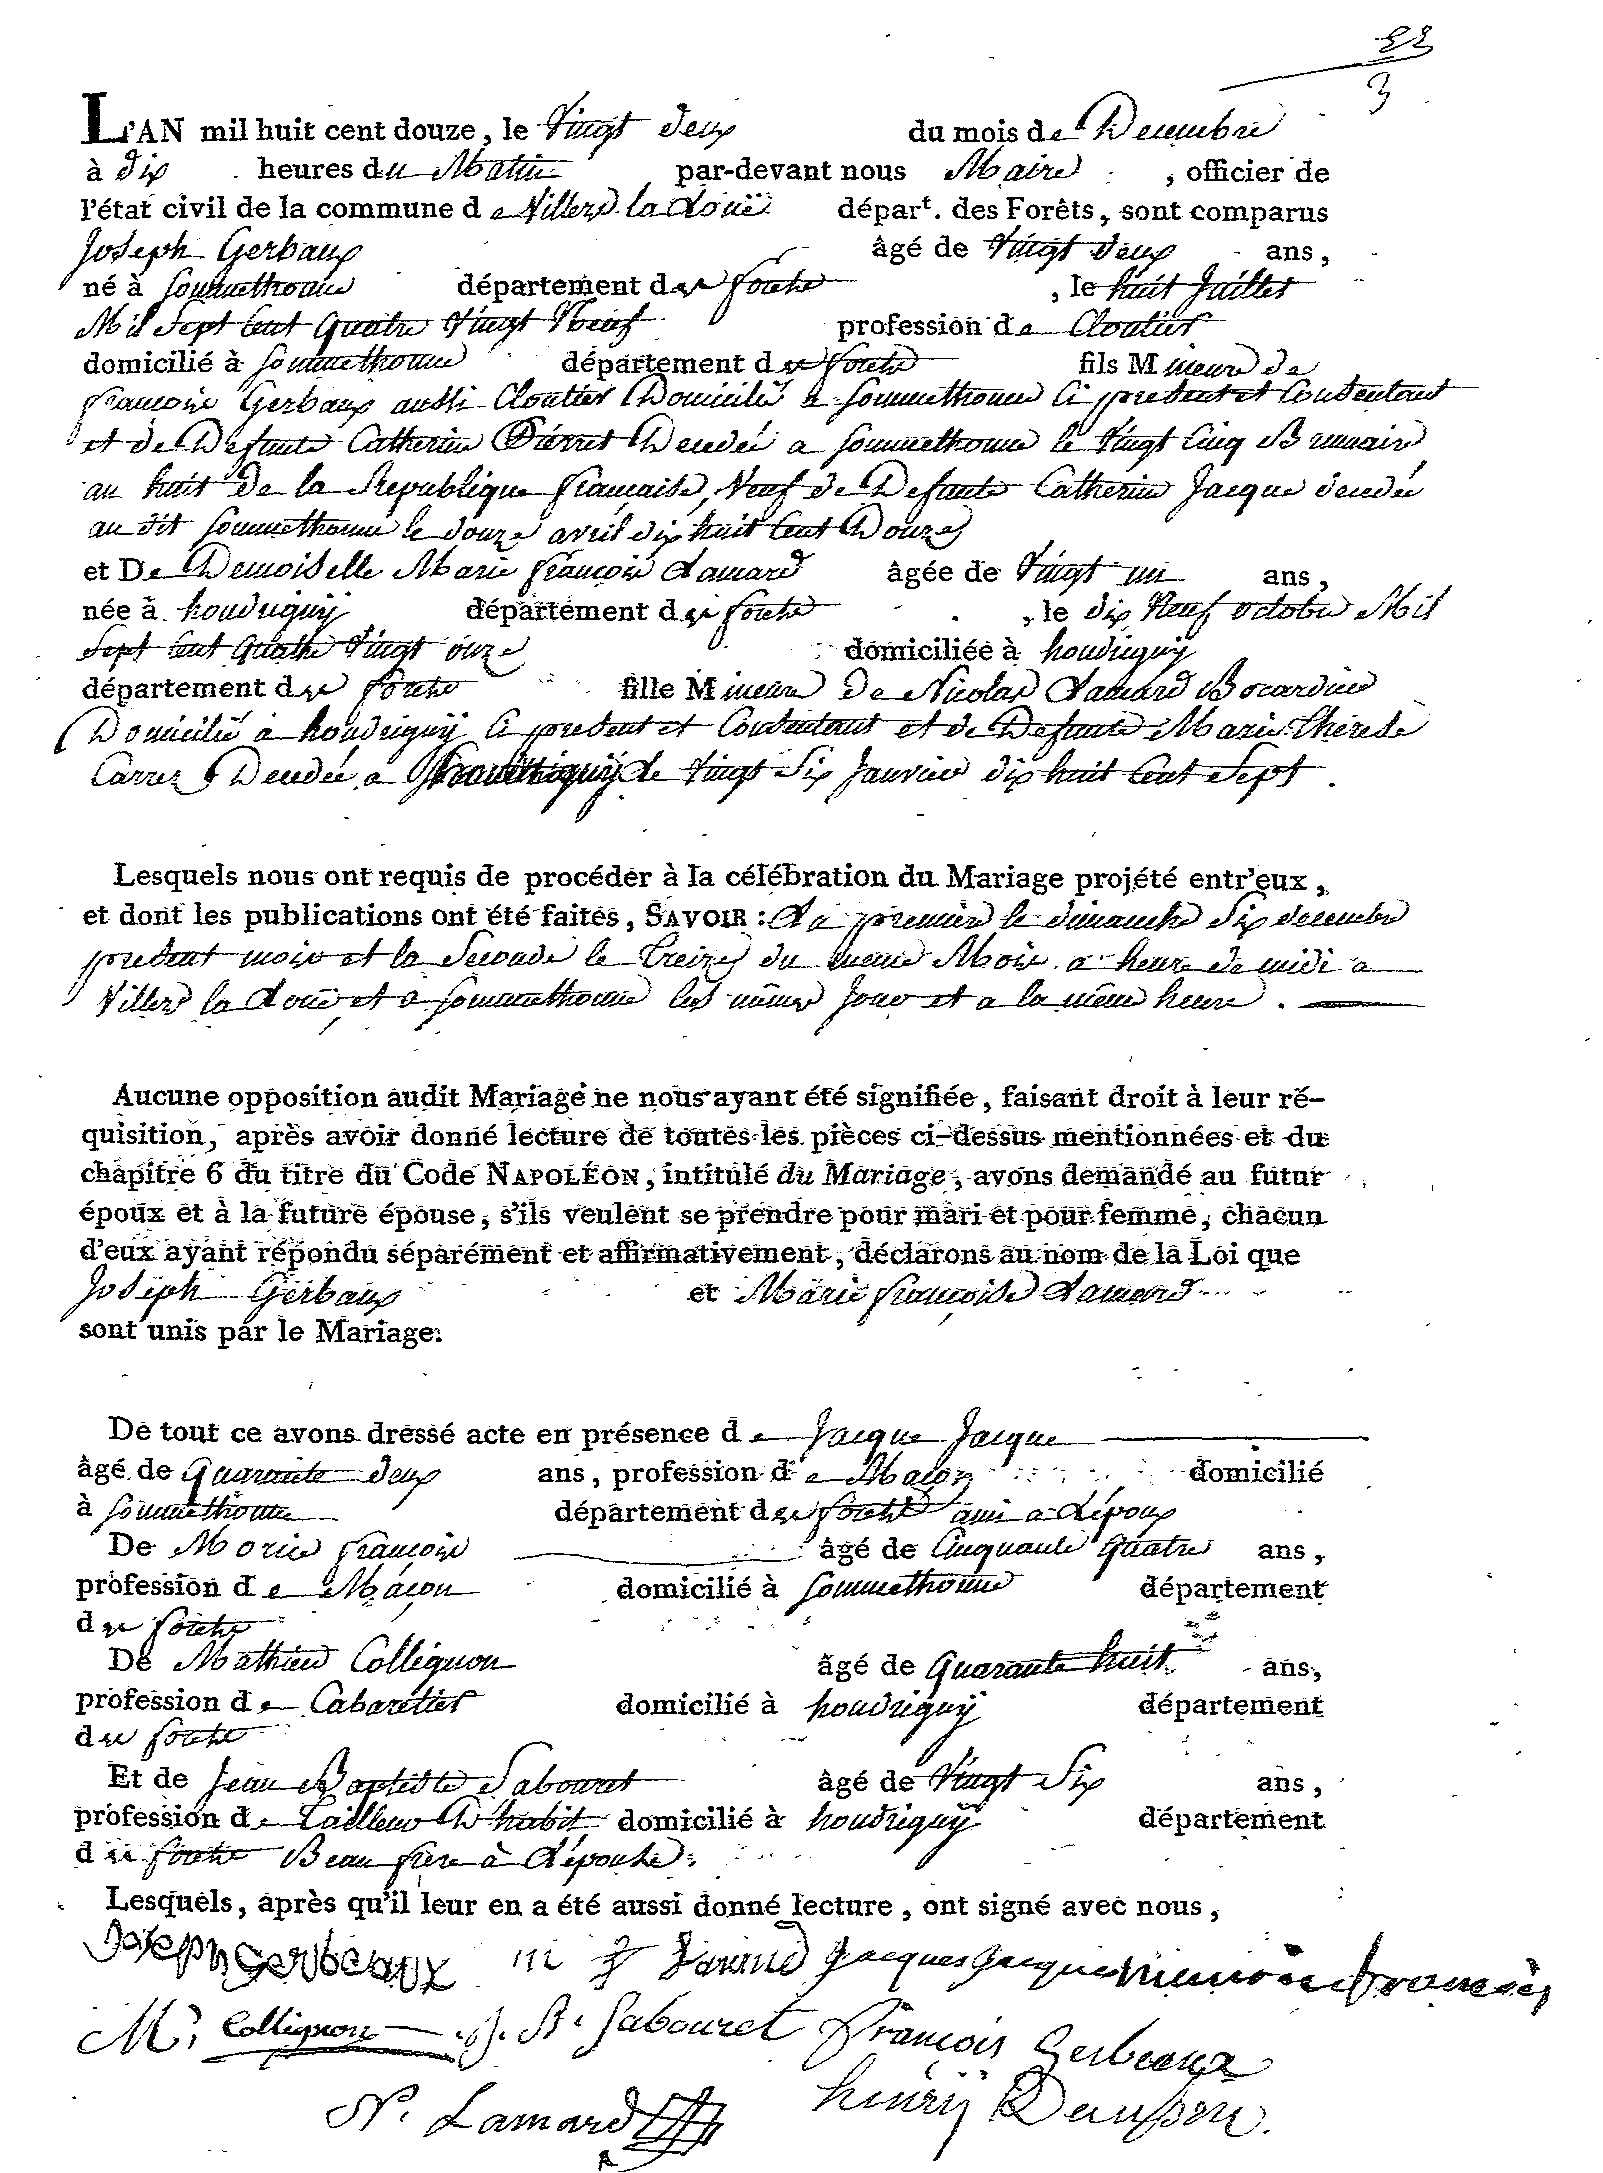 22
3
L'AN mil huit cent douze, le Vingt deux du mois de Decembre
à dix heures du Matin par-devant nous Maire, officier de
l'état civil de la commune de Villers la Loüe départ. des Forêts, sont comparus
Joseph Gerbaux âgé de Vingt deux ans,
né à Sommethonne département des forêts, le huit Juillet
Mil Sept Cent Quatre Vingt Neuf profession de Cloutier
domicilié à Sommethonne département des forêts fils Mineure de
françois Gerbaux aussi Cloutier Domicilié a Sommethonne Ci present et Consentant
et de Defunte Catherine Pierret Decedée a Sommethonne le Vingt Cinq Brumaire
an huit de la Republique française, Veuf de Defunte Catherine Jacque decedée
au dit Sommethonne le douze avril dix huit Cent Douze
et De Demoiselle Marie françoise Lamard âgée de Vingt un ans,
née à houdrigny département des forêts, le dix Neuf octobre Mil
Sept Cent Quatre Vingt onze domiciliée à houdrigny
département des forêts fille Mineure de Nicolas Lamard
Domicilié a houdrigny Ci present et Consentant et de Defunte Marie Thérèse
Carrez Decedée a houdrigny le Vingt Six Janvier dix huit Cent Sept.
Lesquels nous ont requis de procéder à la célébration du Mariage projété entr'eux,
et dont les publications ont été faites, SAVOIR : La premiere le dimanche Six decembre
present mois et la Seconde le treize du meme Mois a heure de midi a
Villers la Loüe et a Sommethonne les mêmes Jours et a la même heure.
Aucune opposition audit Mariage ne nous ayant été signifiée, faisant droit à leur ré-
quisition, après avoir donné lecture de toutes les pièces ci-dessus mentionnées et du
chapitre 6 du titre du Code NAPOLÉON, intitulé du Mariage, avons demandé au futur
époux et à la future épouse, s'ils veulent se prendre pour mari et pour femme, chacun
d'eux ayant répondu séparément et affirmativement, déclarons au nom de la Loi que
Joseph Gerbaux et Marie françoise Lamard
sont unis par le Mariage.
De tout ce avons dressé acte en présence de Jacque Jacque
âgé de Quarante deux ans, profession de Maçon domicilié
à Sommethonne département des forêts ami a L'époux
De françois âgé de Cinquante Quatre ans,
profession de Maçon domicilié à Sommethonne département
des forêts
De Mathieu Collignon âgé de Quarante huit ans,
profession de Cabaretier domicilié à houdrigny département
des forêts
Et de Jean Baptiste Sabouret âgé de Vingt Six ans,
profession de Tailleur D'habit domicilié à houdrigny département
des forêts Beau frere à L'épouse.
Lesquels, après qu'il leur en a été aussi donné lecture, ont signé avec nous,
Joseph Gerbeaux m f Lamard Jacques Jacques françois
M. Collignon J. B. Sabouret François Gerbeaux
N. Lamard henrÿ